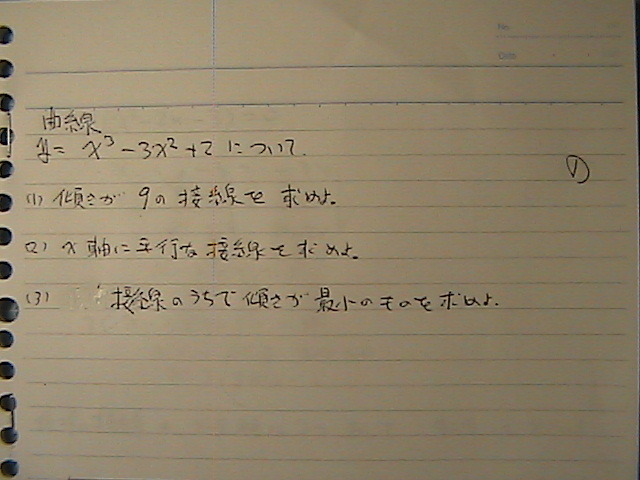 No.
Date
曲線
y = x³ - 3x² + 2 について.
①
(1) 傾きが 9の 接線を 求めよ。
(2) x 軸に平行な接線を求めよ。
(3) 接線のうちで傾きが最小のものを求めよ.